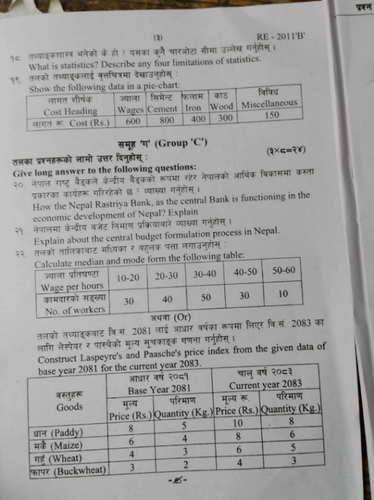 प्रश्न
(३)
RE - 2011'B'
१८. तथ्याङ्कशास्त्र भनेको के हो ? यसका कुनै चारओटा सीमा उल्लेख गर्नुहोस् ।
What is statistics? Describe any four limitations of statistics.
१९. तलको तथ्याङ्कलाई वृत्तचित्रमा देखाउनुहोस् :
Show the following data in a pie-chart:
लागत शीर्षक ज्याला सिमेन्ट फलाम काठ विविध
Cost Heading Wages Cement Iron Wood Miscellaneous
लागत रू. Cost (Rs.) 600 800 400 300 150
समूह 'ग' (Group 'C')
तलका प्रश्नहरूको लामो उत्तर दिनुहोस् :
(३×८=२४)
Give long answer to the following questions:
२०. नेपाल राष्ट्र बैङ्कले केन्द्रीय बैङ्कको रूपमा रहेर नेपालको आर्थिक विकासमा कस्ता
प्रकारका कार्यहरू गरिरहेको छ ? व्याख्या गर्नुहोस् ।
How the Nepal Rastriya Bank, as the central Bank is functioning in the
economic development of Nepal? Explain
२१ नेपालमा केन्द्रीय बजेट निर्माण प्रक्रियाबारे व्याख्या गर्नुहोस् ।
Explain about the central budget formulation process in Nepal.
२२ तलको तालिकाबाट मध्यिका र बहुलक पत्ता लगाउनुहोस् :
Calculate median and mode form the following table:
ज्याला प्रतिघण्टा 10-20 20-30 30-40 40-50 50-60
Wage per hours
कामदारको सङ्ख्या 30 40 50 30 10
No. of workers
अथवा (Or)
तलको तथ्याङ्कबाट वि.सं. 2081 लाई आधार वर्षका रूपमा लिएर वि.सं. 2083 का
लागि लेस्पेयर र पास्चेको मूल्य सूचकाङ्क गणना गर्नुहोस् ।
Construct Laspeyre's and Paasche's price index from the given data of
base year 2081 for the current year 2083.
वस्तुहरू आधार वर्ष २०८१ चालु वर्ष २०८३
Goods Base Year 2081 Current year 2083
मूल्य परिमाण मूल्य रू. परिमाण
Price (Rs.) Quantity (Kg.) Price (Rs.) Quantity (Kg.)
धान (Paddy) 8 5 10 8
मकै (Maize) 6 4 8 6
गहुँ (Wheat) 4 3 6 5
फापर (Buckwheat) 3 2 4 3